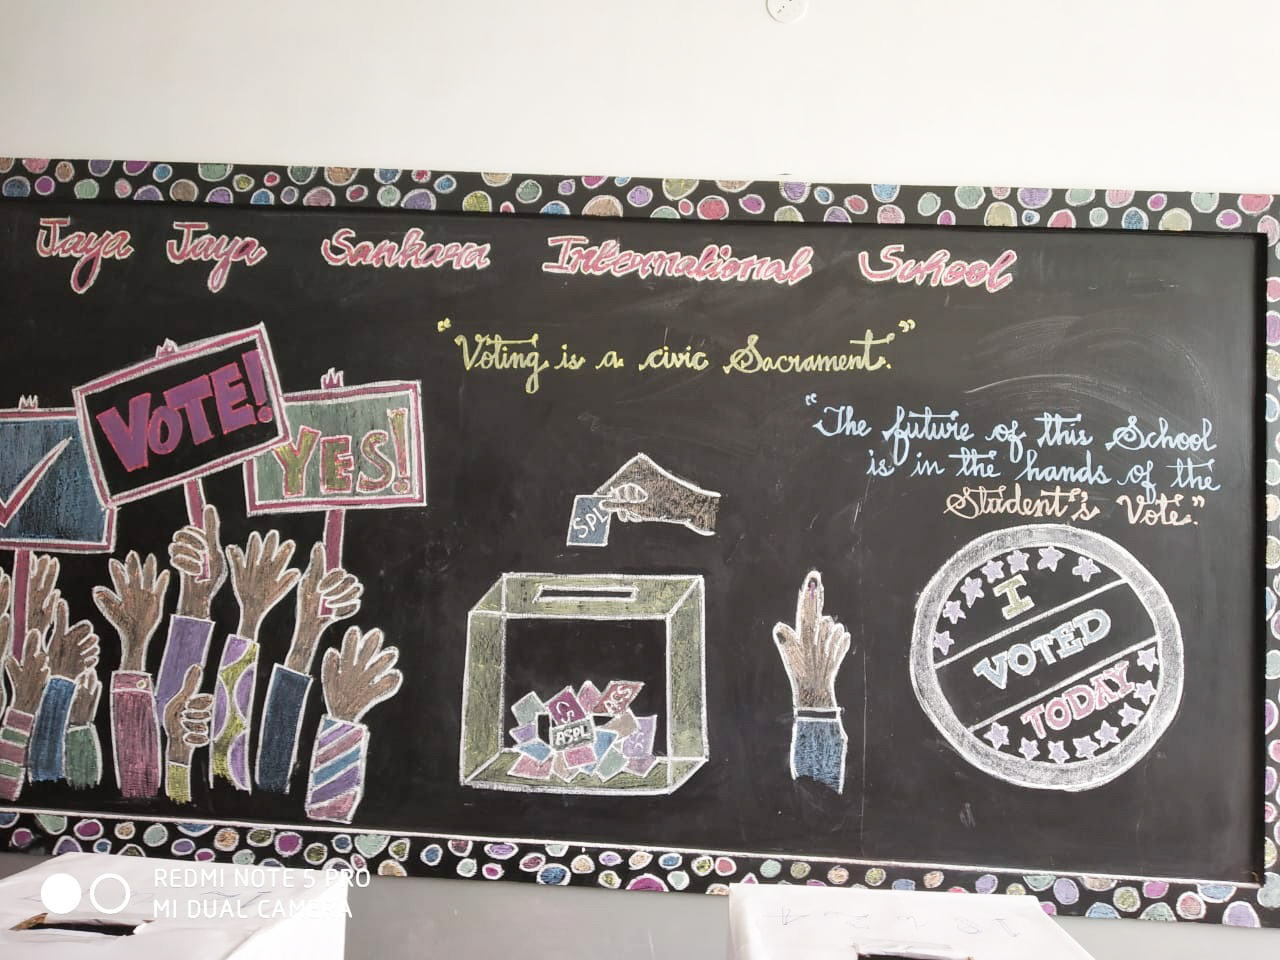 Jaya Jaya Sankara International School
"Voting is a civic Sacrament."
VOTE!
YES!
"The future of this School
is in the hands of the
Student's Vote."
SPL
ASPL
I
VOTED
TODAY
REDMI NOTE 5 PRO
MI DUAL CAMERA